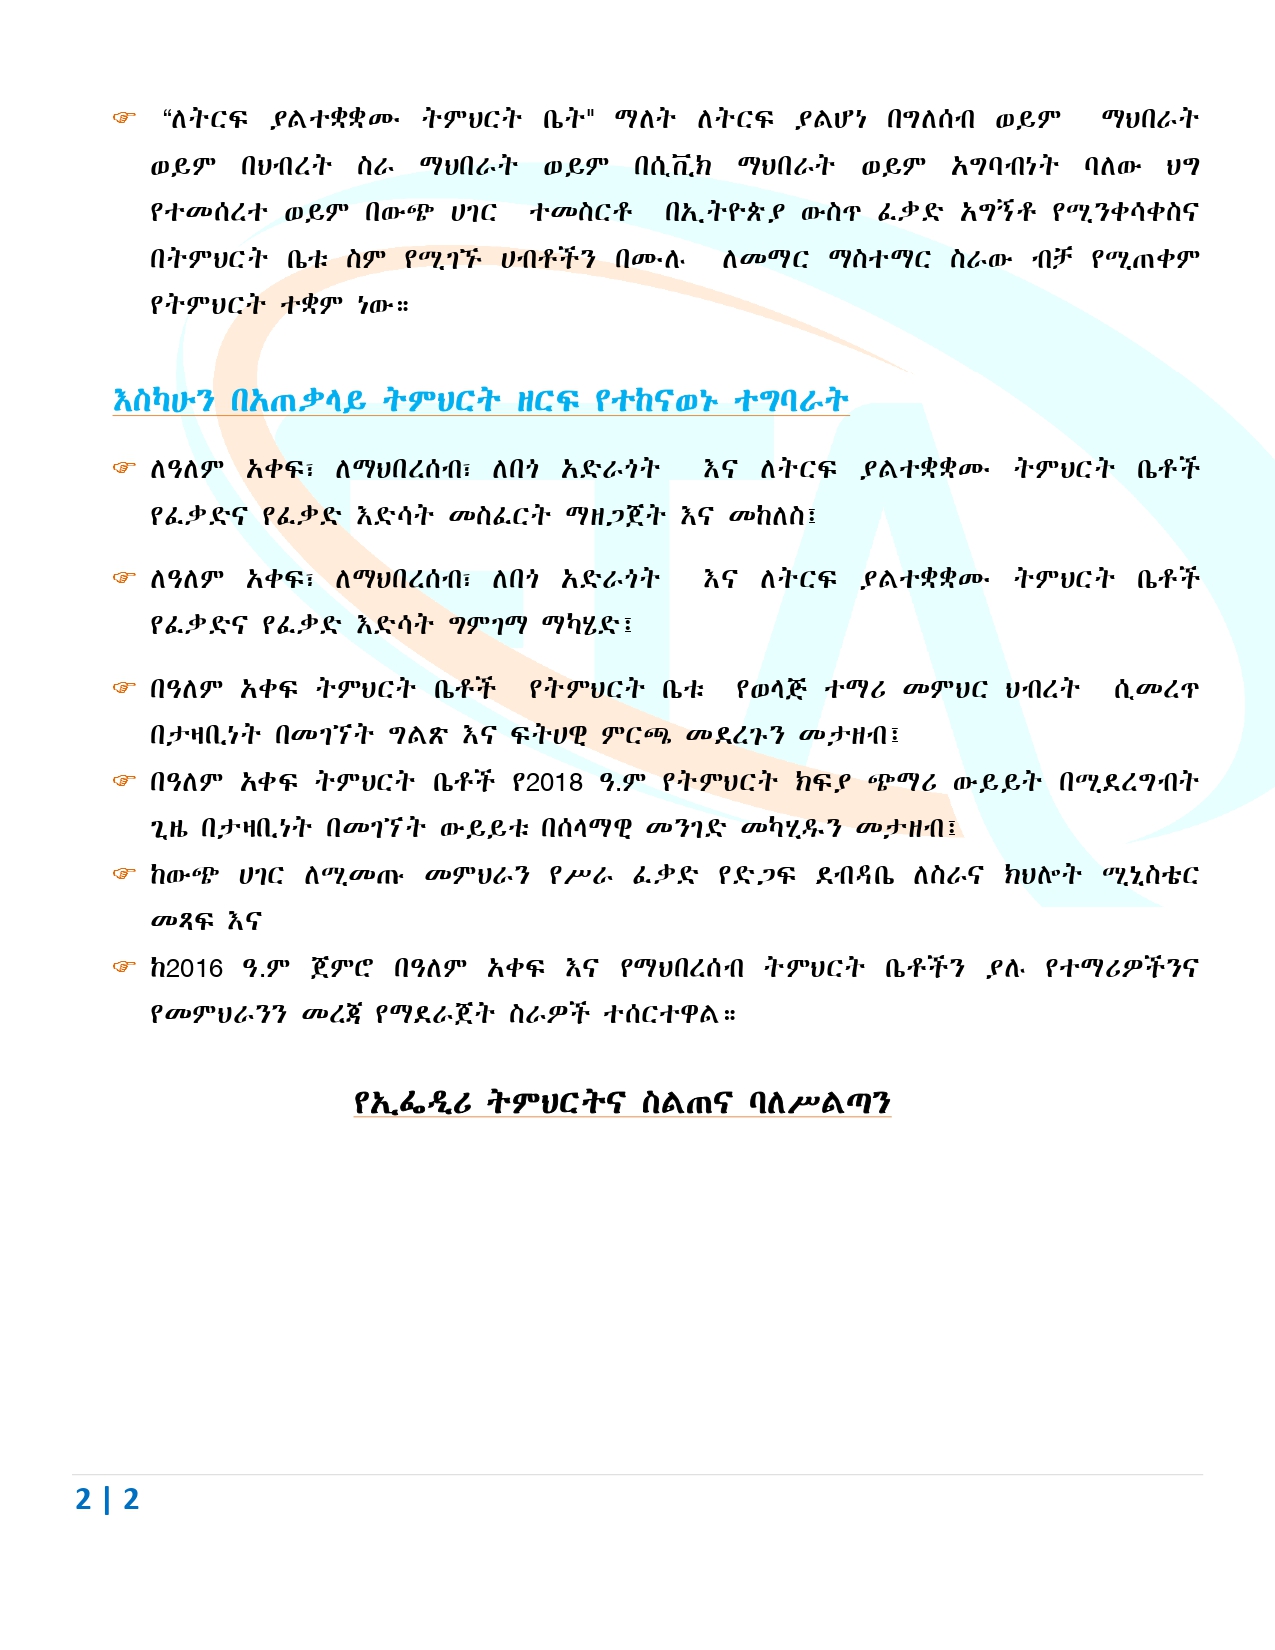 ☞ “ለትርፍ ያልተቋቋሙ ትምህርት ቤት" ማለት ለትርፍ ያልሆነ በግለሰብ ወይም ማህበራት
ወይም በህብረት ስራ ማህበራት ወይም በሲቪክ ማህበራት ወይም አግባብነት ባለው ህግ
የተመሰረተ ወይም በውጭ ሀገር ተመስርቶ በኢትዮጵያ ውስጥ ፈቃድ አግኝቶ የሚንቀሳቀስና
በትምህርት ቤቱ ስም የሚገኙ ሀብቶችን በሙሉ ለመማር ማስተማር ስራው ብቻ የሚጠቀም
የትምህርት ተቋም ነው፡፡
እስካሁን በአጠቃላይ ትምህርት ዘርፍ የተከናወኑ ተግባራት
☞ ለዓለም አቀፍ፣ ለማህበረሰብ፣ ለበጎ አድራጎት እና ለትርፍ ያልተቋቋሙ ትምህርት ቤቶች
የፈቃድና የፈቃድ እድሳት መስፈርት ማዘጋጀት እና መከለስ፤
☞ ለዓለም አቀፍ፣ ለማህበረሰብ፣ ለበጎ አድራጎት እና ለትርፍ ያልተቋቋሙ ትምህርት ቤቶች
የፈቃድና የፈቃድ እድሳት ግምገማ ማካሄድ፤
☞ በዓለም አቀፍ ትምህርት ቤቶች የትምህርት ቤቱ የወላጅ ተማሪ መምህር ህብረት ሲመረጥ
በታዛቢነት በመገኘት ግልጽ እና ፍትሀዊ ምርጫ መደረጉን መታዘብ፤
☞ በዓለም አቀፍ ትምህርት ቤቶች የ2018 ዓ.ም የትምህርት ክፍያ ጭማሪ ውይይት በሚደረግብት
ጊዜ በታዛቢነት በመገኘት ውይይቱ በሰላማዊ መንገድ መካሂዱን መታዘብ፤
☞ ከውጭ ሀገር ለሚመጡ መምህራን የሥራ ፈቃድ የድጋፍ ደብዳቤ ለስራና ክህሎት ሚኒስቴር
መጻፍ እና
☞ ከ2016 ዓ.ም ጀምሮ በዓለም አቀፍ እና የማህበረሰብ ትምህርት ቤቶችን ያሉ የተማሪዎችንና
የመምህራንን መረጃ የማደራጀት ስራዎች ተሰርተዋል፡፡
የኢፌዲሪ ትምህርትና ስልጠና ባለሥልጣን
2 | 2
ETA